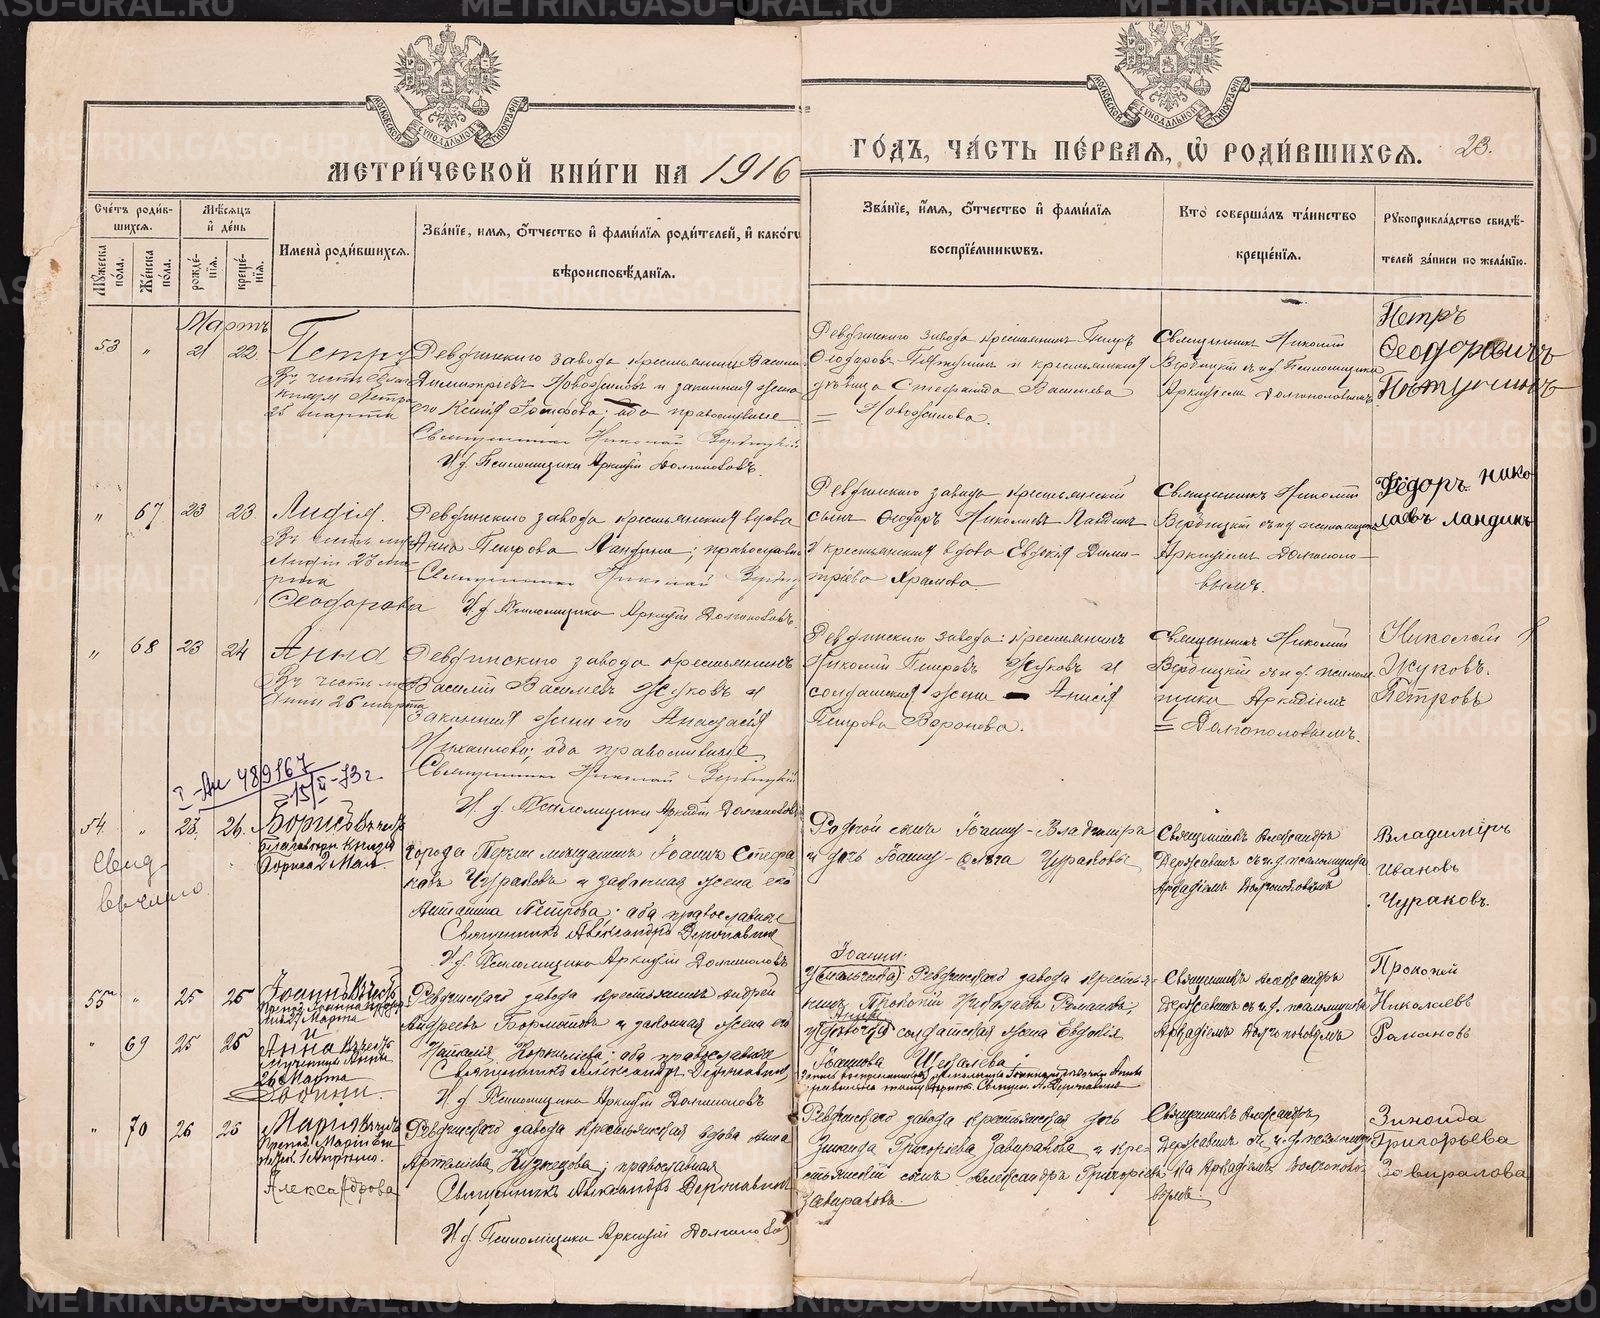 МЕТРИ́ЧЕСКОЙ КНИ́ГИ НА 1916
ГО́ДЪ, ЧА́СТЬ ПЕ́РВАЯ, Ѡ РОДИ́ВШИХСЯ. 23.
МОСКОВСКОЙ СѴНОДАЛЬНОЙ ТИПОГРАФІИ
МОСКОВСКОЙ СѴНОДАЛЬНОЙ ТИПОГРАФІИ
Сче́тъ роди́в-
шихся.
Мꙋ́жеска по́ла.
Же́нска по́ла.
Мѣ́сяцъ
и҆ де́нь
рожде́-
нїѧ.
креще́-
нїѧ.
Имена̀ роди́вшихся.
Зва́нїе, и҆мя, ѻ҆́тчество и҆ фамѝлїя роди́телей, и҆ како́гѡ
вѣроисповѣ́данїя.
Зва́нїе, и҆́мя, ѻ҆́тчество и҆ фами́лїя
воспрїе́мниковъ.
Кто̀ соверша́лъ та́инство
креще́нїя.
Рꙋкоприкла́дство свидѣ́-
телей за́писи по жела́нїю.
Мартъ
53 " 21 22
Петръ
Ревдинскаго завода крестьянинъ Василий
Димитріевъ Новожиловъ и законная жена
его Ксенія Іосифова; оба православные
Священникъ Николай Вербицкій
И. д. Псаломщика Аркадій Долгополовъ.
Ревдинскаго завода крестьянинъ Петръ
Ѳеодоровъ и крестьянская
дѣвица Стефанида Васильева
Новожилова.
Священникъ Николай
Вербицкій съ и. д. Псаломщика
Аркадіемъ Долгополовымъ.
Петръ
Ѳеодоровичъ
" 67 23 23
Лидія.
Ѳеодорова
Ревдинскаго завода крестьянская вдова
Анна Петрова Ландина; православная
Священникъ Николай Вербицкій
И. д. Псаломщика Аркадій Долгополовъ.
Ревдинскаго завода крестьянскій
сынъ Ѳеодоръ Николаевъ Ландинъ
и крестьянская вдова Евдокія Дими-
тріева Храмова
Священникъ Николай
Вербицкій съ и. д. псаломщика
Аркадіемъ Долгополо-
вымъ.
Фёдоръ нико-
лаевъ ландинъ
" 68 23 24
Анна
Ревдинскаго завода крестьянинъ
Василій Васильевъ Жуковъ и
законная жена его Анастасія
Михаилова; оба православные
Священникъ Николай Вербицкій
И. д. Псаломщика Аркадій Долгополовъ
Ревдинскаго завода: крестьянинъ
Николай Петровъ Жуковъ и
солдатская жена Анисія
Петрова Воронова.
Священникъ Николай
Вербицкій съ и. д. псалом-
щика Аркадіемъ
Долгополовымъ.
Николай
Жуковъ.
Петровъ
I-Аи 489167
15/II-73 г.
54. " 23. 26.
Свид.
вручено
Борисъ Въ честь
Благовѣрн. Князя
Бориса 2 Мая.
Города Перми мѣщанинъ Іоаннъ Стефа-
новъ Чураковъ и законная жена его
Антонина Петрова; оба православные
Священникъ Александръ Державинъ
И. д. Псаломщика Аркадій Долгополовъ
Родной сынъ Іоанну - Владиміръ
и дочь Іоанну - Ольга Чураковы
Священникъ Александръ
Державинъ съ и. д. псаломщика
Аркадіемъ Долгополовымъ
Владиміръ
Ивановъ
Чураковъ.
55 " 25 25
" 69 25 25
Іоаннъ Въ честь
Марта
и
Анна Въ честь
Мученицы Анны
26 Марта
Двойни.
Ревдинскаго завода крестьянинъ Андрей
Андреевъ и законная жена его
Наталія Корнилиева; оба православные
Священникъ Александръ Державинъ
И. д. Псаломщика Аркадій Долгополовъ
Іоанн.
у (мальчика) Ревдинскаго завода крестья-
нинъ Прокопій Николаевъ Романовъ;
Анны
у (дѣвочки) солдатская жена Евдокія
Іоаннова Щекалева
Священникъ Александръ
Державинъ съ и. д. псаломщика
Аркадіемъ Долгополовымъ
Прокопій
Николаевъ
Романовъ
" 70 26 26
Марія Въ честь
Препод. Маріи Еги-
пет. 1 Апрѣля.
Александрова
Ревдинскаго завода крестьянская вдова Анна
Артеміева Кузнецова; православная
Священникъ Александръ Державинъ
И. д. Псаломщика Аркадій Долгополовъ
Ревдинскаго завода крестьянская дочь
Зинаида Григорьева Завиралова и кре-
стьянскій сынъ Александръ Григорьевъ
Завираловъ.
Священникъ Александръ
Державинъ съ и. д. псаломщи-
ка Аркадіемъ Долгополо-
вымъ.
Зиноида
Григорьева
Завиралова
METRIKI.GASO-URAL.RU